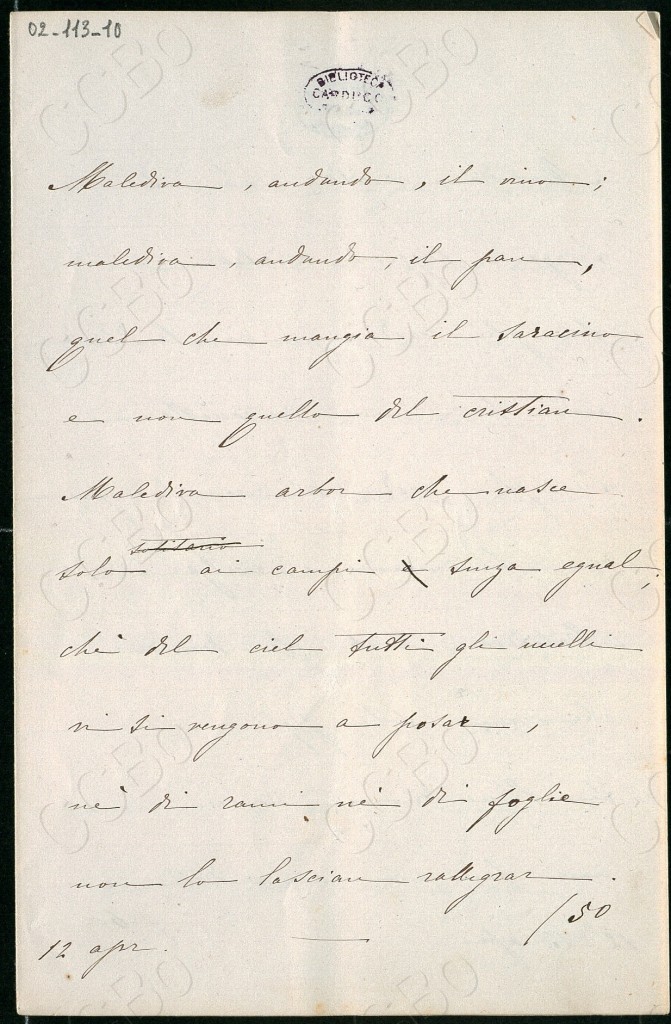 02-113-10
BIBLIOTECA
CARDUCCI
Malediva, andando, il vino;
malediva, andando, il pan,
quel che mangia il saracino
e non quello del cristian.
Malediva arbor che nasce
solitario
solo ai campi e senza egual,
chè del ciel tutti gli uccelli
vi si vengono a posar,
nè di rami nè di foglie
non lo lascian rallegrar.
/50
12 apr.